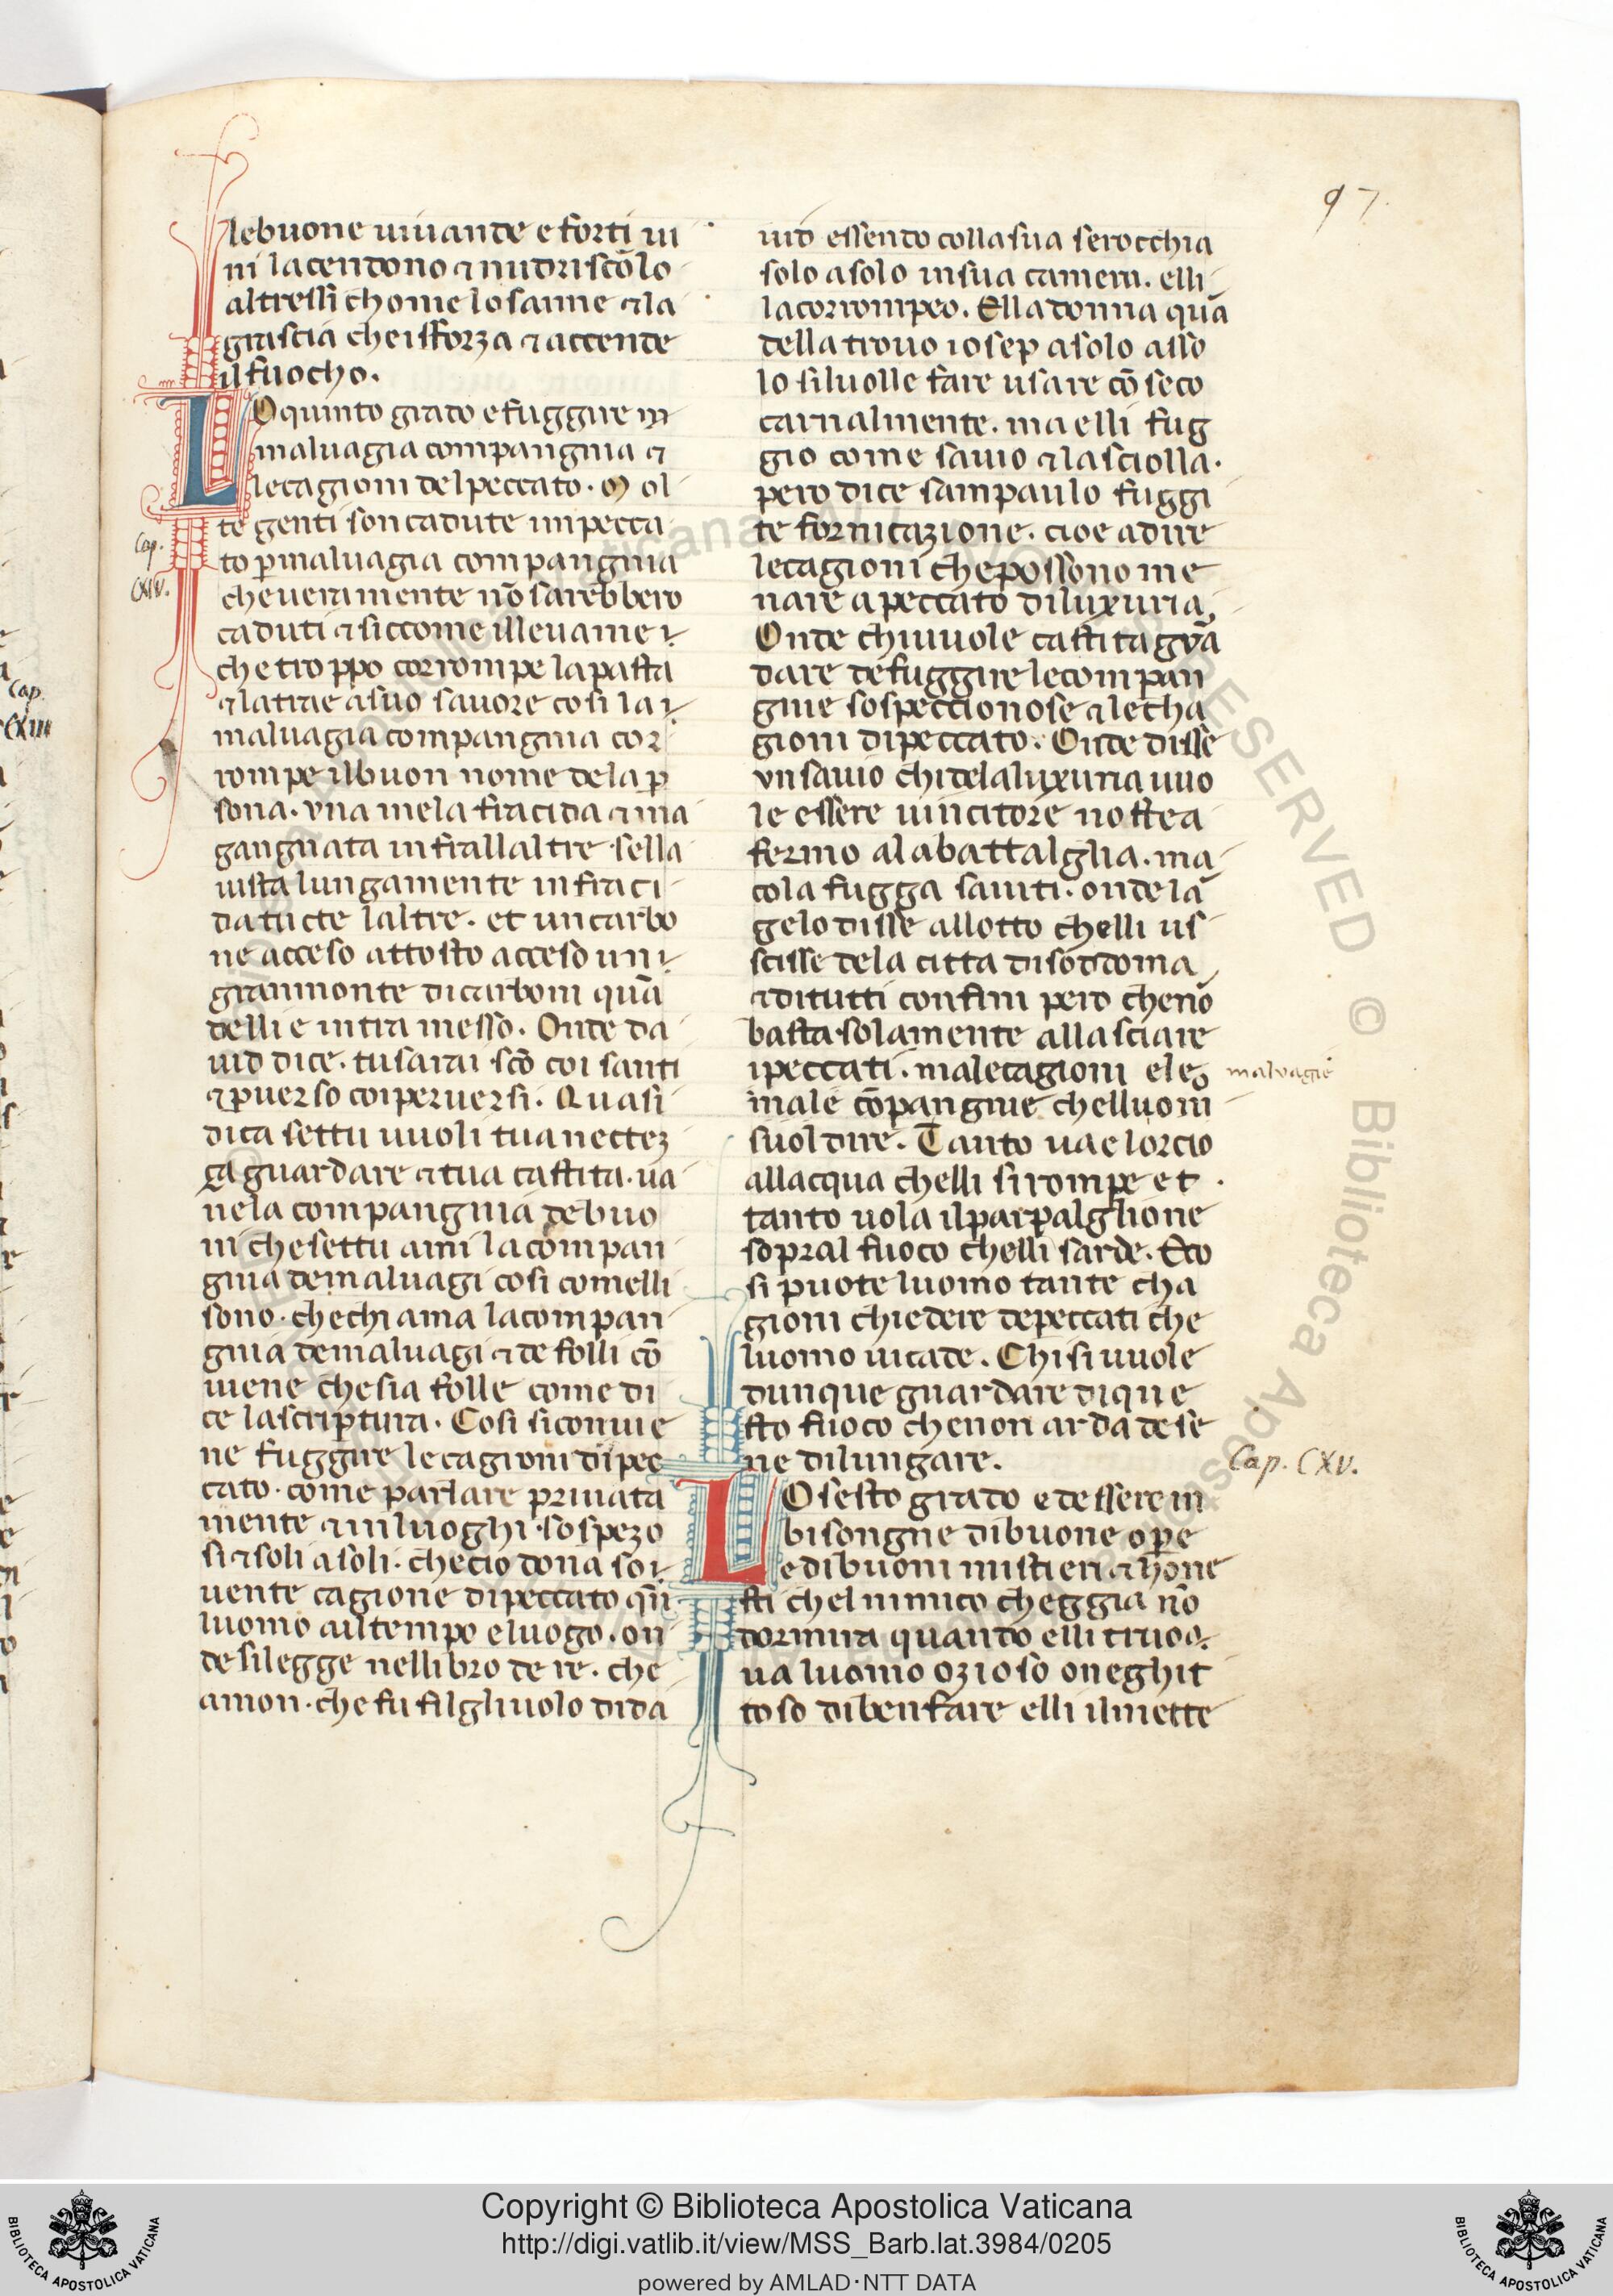 97.
lebuone uiuande e forti ui
ni lacendono ⁊ nudriscōlo
altressi chome losaime ⁊ la
grascia cheisforza ⁊ accende
il fuocho.
LO quinto grado e fuggire in
maluagia compangnia ⁊
lecagioni delpeccato. Mol
te genti son cadute impecca
to ꝑmaluagia compangnia
cheueramente nō sarebbero
caduti ⁊ siccome illeuame
che troppo corrompe lapasta
⁊ latrae asuo sauore cosi la
maluagia compangnia cor
rompe ilbuon nome dela ꝑ
sona. vna mela fracida ⁊ ma
gangnata infrallaltre sella
uista lungamente infraci
da tucte laltre. et un carbo
ne acceso attosto acceso un
granmonte dicarboni quā
delli e intra messo. Onde da
uid dice. tusarai scō coi santi
⁊ ꝑuerso coiperuersi. Quasi
dica settu uuoli tua nectez
ça guardare ⁊ tua castita. ua
nela compangnia debuo
ni chesettu ami lacompan
gnia demaluagi cosi comelli
sono. chechi ama lacompan
gnia demaluagi ⁊ de folli cō
uiene chesia folle come di
ce lascriptura. Cosi siconuie
ne fuggire lecagioni dipec
cato. come parlare priuata
mente ⁊ inluoghi sospezo
si ⁊ soli asoli. checio dona so
uente cagione dipeccato qn̄
luomo ailtempo eluogo. on
de silegge nellibro de re. che
amon. che fu filgliuolo dida
Cap.
CXIV.
uid essendo collasua serocchia
solo asolo insua camera. elli
lacorrompeo. Elladonna quā
della trouo iosep asolo asso
lo siluolle fare usare cō seco
carnalmente. ma elli fug
gio come sauio ⁊ lasciolla.
pero dice sampaulo fuggi
te fornicazione. cioe adire
lecagioni chepossono me
nare apeccato diluxuria.
Onde chiuuole castita gua
dare defuggire lecompan
gnie sospeccionose ⁊ lecha
gioni dipeccato. Onde disse
vnsauio chidelaluxuria uuo
le essere uincitore nostea
fermo alabattalglia. ma
cola fugga sauiti. ondelā
gelo disse allotto chelli us
scisse dela citta disoddoma
⁊ ditutti confini pero chenō
basta solamente allasciare
ipeccati. malecagioni ele
male cōpangnie chelluom
suol dire. Tanto uae lorcio
allacqua chelli sirompe et
tanto uola ilparpalglione
sopral fuoco chelli sarde. Eco
si puote luomo tante cha
gioni chiedere depeccati che
luomo uicade. Chisi uuole
dunque guardare diqu e
sto fuoco chenon arda dese
ne dilungare.
LO sesto grado e dessere in
bisongne dibuone opere
e dibuoni mistieri ⁊ hone
sti chel nimico cheggia nō
dormira quando elli truo
ua luomo ozioso oneghit
toso dibenfare elli ilmette
malvagie
Cap. CXV.
Cap.
CXIII
Copyright © Biblioteca Apostolica Vaticana
http://digi.vatlib.it/view/MSS_Barb.lat.3984/0205
powered by AMLAD·NTT DATA
BIBLIOTECA APOSTOLICA VATICANA
BIBLIOTECA APOSTOLICA VATICANA